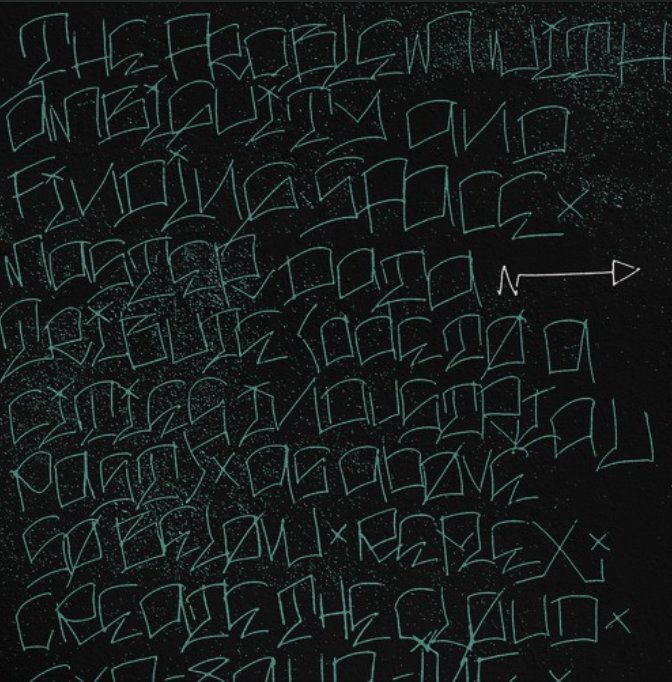 THE PROBLEM WITH
AMBIGUITY AND
FINDING SPACE X
MASTER DATA
TRIBUTE (ODE TO A
CITIES INDUSTRIAL
PAST) X AS ABOVE
SO BELOW X REFLEX
CREATE THE CLOUD X